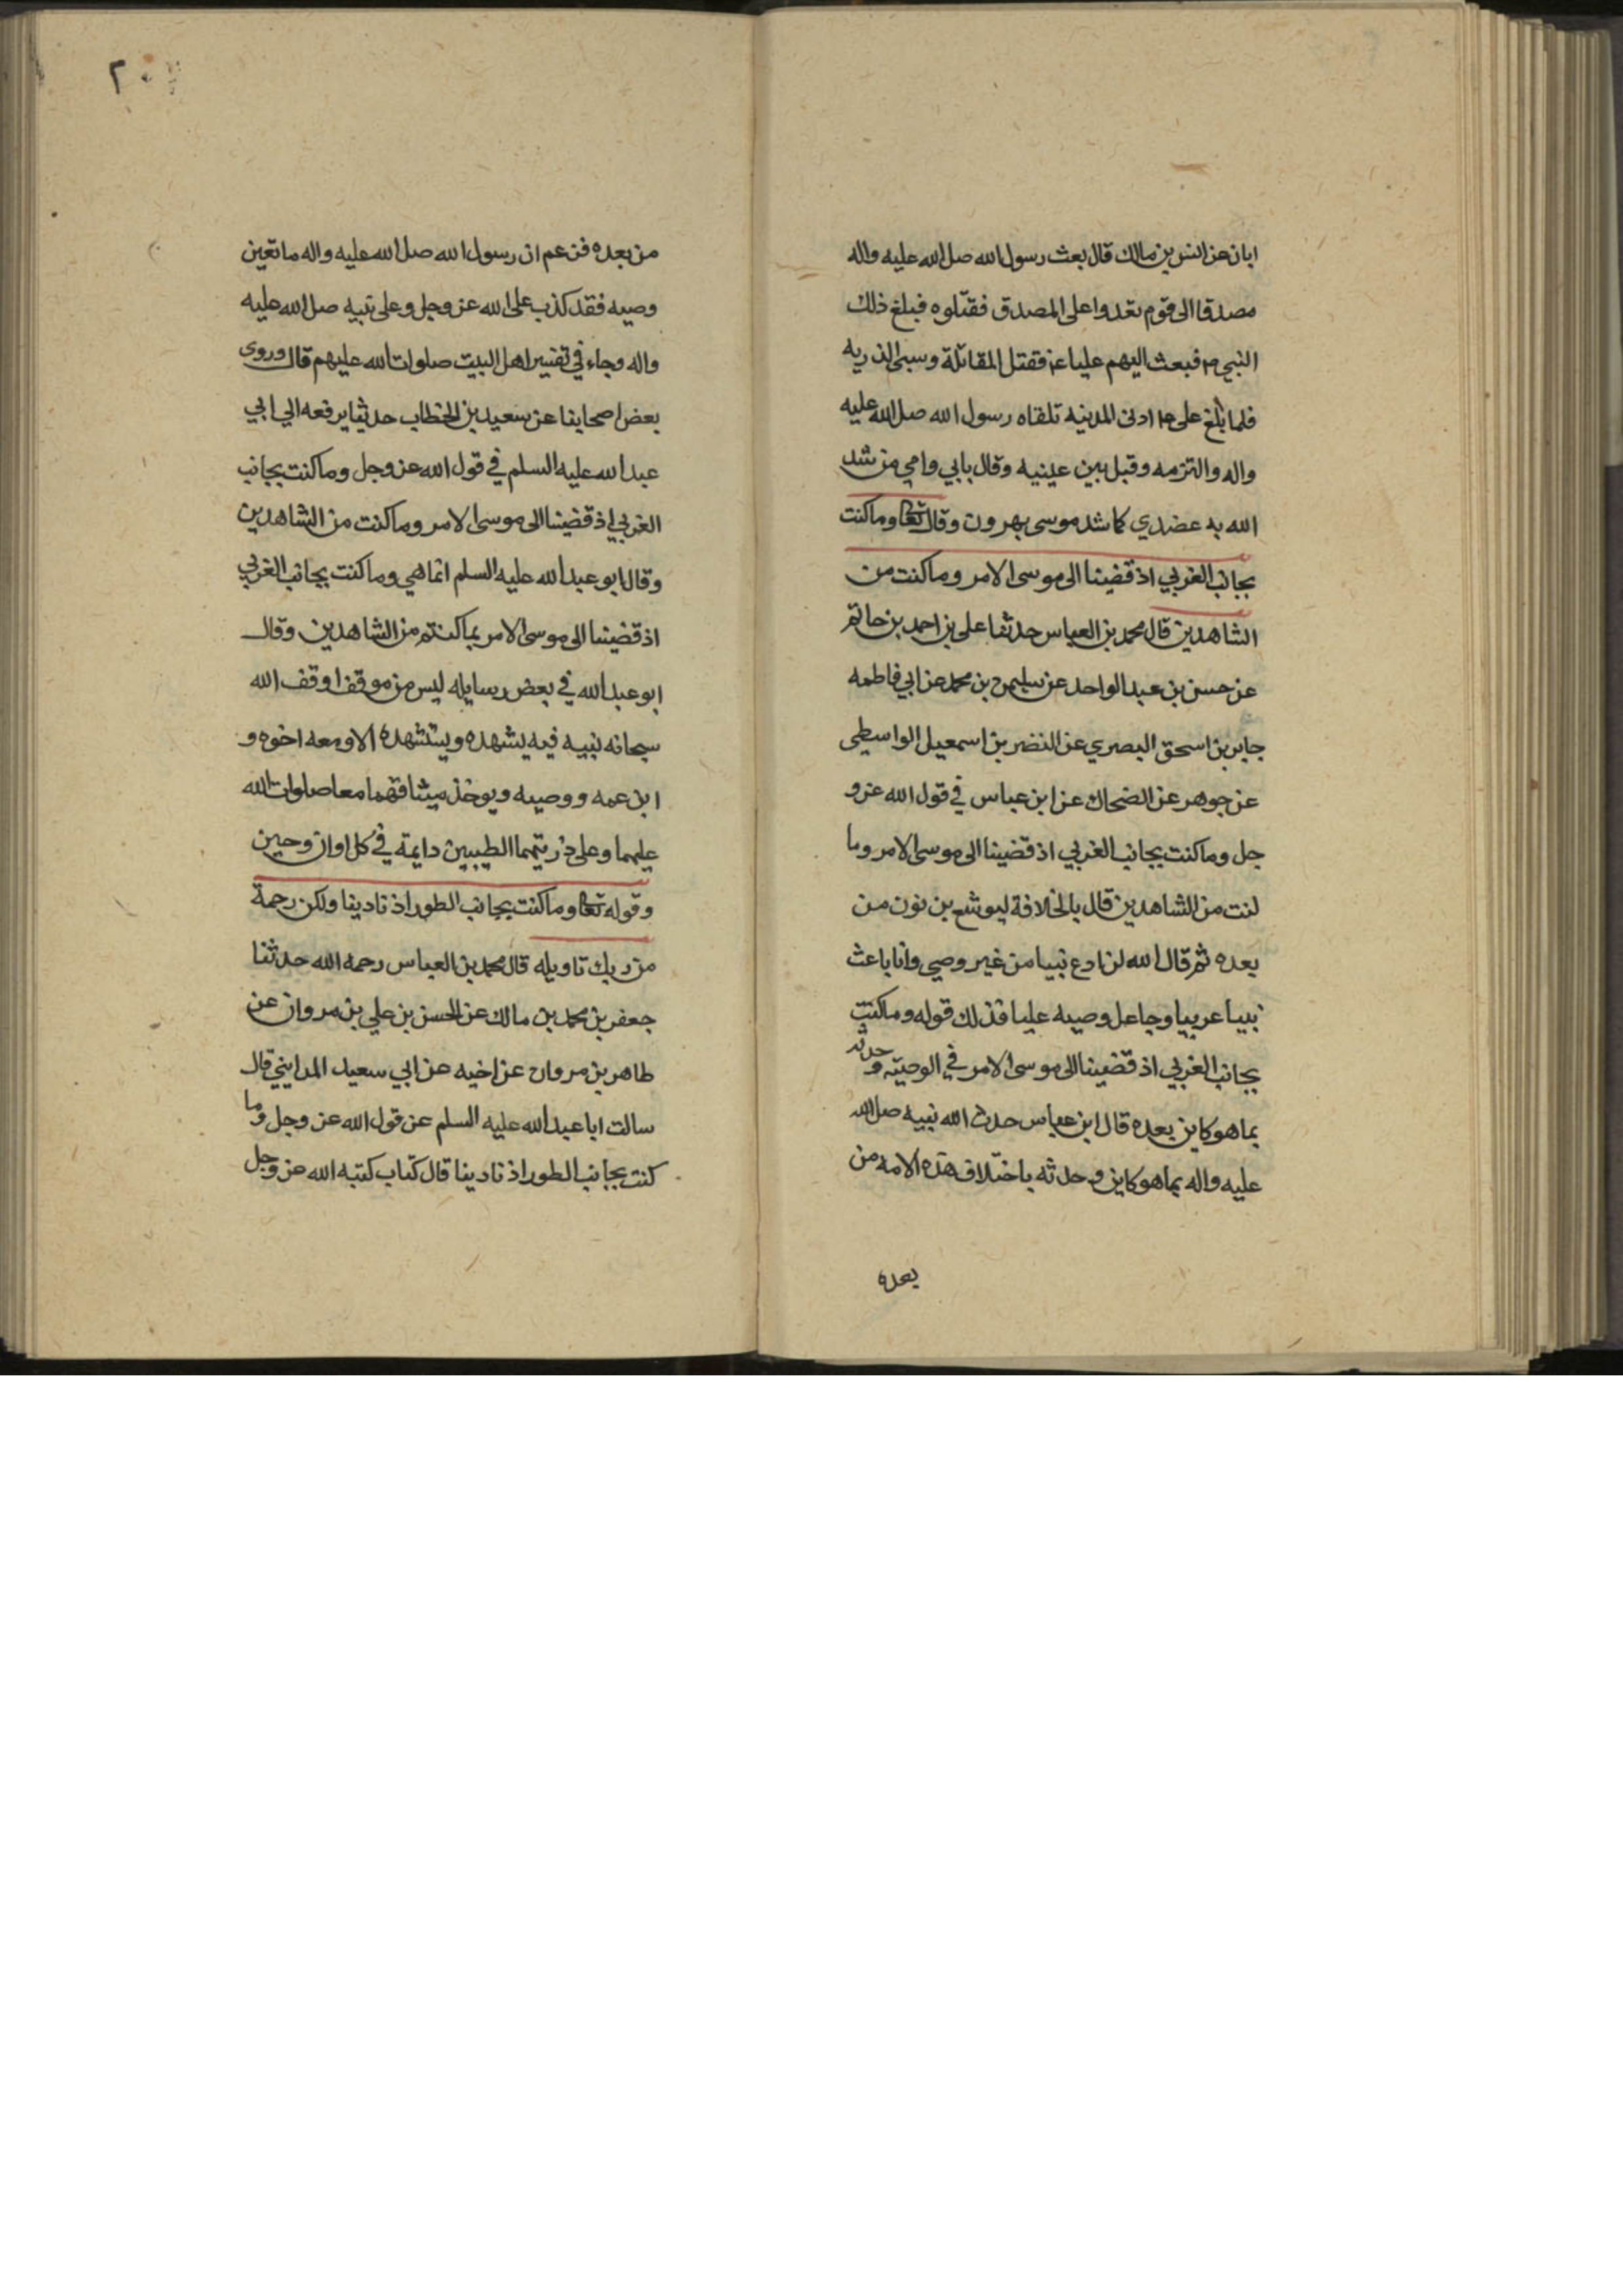 ابان عن انس بن مالك قال بعث رسول الله صلى الله عليه واله
مصدقا الى قوم تعدوا على المصدق فقتلوه فبلغ ذلك
النبي ص فبعث اليهم عليا ع فقتل المقاتلة وسبى الذريه
فلما بلغ على ع ادنى المدينه تلقاه رسول الله صلى الله عليه
واله والتزمه وقبل بين عينيه وقال بابي وامي من شد
الله به عضدي كما شد موسى بهرون وقال تعا وما كنت
بجانب الغربي اذ قضينا الى موسى الامر وما كنت من
الشاهدين قال محمد بن العباس حدثنا على بن احمد بن حاتم
عن حسن بن عبد الواحد عن سليمن بن محمد عن ابي فاطمه
جابر بن اسحق البصري عن النضر بن اسمعيل الواسطي
عن جوهر عن الضحاك عن ابن عباس في قول الله عز و
جل وما كنت بجانب الغربي اذ قضينا الى موسى الامر وما
كنت من الشاهدين قال بالخلافة ليوشع بن نون من
بعده ثم قال الله لن ادع نبيا من غير وصي وانا باعث
نبيا عربيا وجاعل وصيه عليا فذلك قوله وما كنت
بجانب الغربي اذ قضينا الى موسى الامر في الوصيه وحدثه
بما هو كاين بعده قال ابن عباس حدث الله نبيه صلى الله
عليه واله بما هو كاين وحدثه باختلاف هذه الامه من
بعده
٢٠
من بعده فمن زعم ان رسول الله صلى الله عليه واله ما تعين
وصيه فقد كذب على الله عز وجل وعلى نبيه صلى الله عليه
واله وجاء في تفسير اهل البيت صلوات الله عليهم قال وروى
بعض اصحابنا عن سعيد بن الخطاب حديثا يرفعه الي ابي
عبد الله عليه السلم في قول الله عز وجل وما كنت بجانب
الغربي اذ قضينا الى موسى الامر وما كنت من الشاهدين
وقال ابو عبد الله عليه السلم انما هي وما كنت بجانب الغربي
اذ قضينا الى موسى الامر بما كنتم من الشاهدين وقال
ابو عبد الله في بعض رسايله ليس من موقف اوقف الله
سبحانه نبيه فيه يشهده ويستشهده الا ومعه اخوه و
ابن عمه ووصيه ويوخذ ميثاقهما معا صلوات الله
عليهما وعلى ذريتهما الطيبين دايمة في كل اوان وحين
وقوله تعا وما كنت بجانب الطور اذ نادينا ولكن رحمة
من ربك تاويله قال محمد بن العباس رحمه الله حدثنا
جعفر بن محمد بن مالك عن الحسن بن علي بن مروان عن
طاهر بن مروان عن اخيه عن ابي سعيد المدايني قال
سالت ابا عبد الله عليه السلم عن قول الله عز وجل وما
كنت بجانب الطور اذ نادينا قال كتاب كتبه الله عز وجل